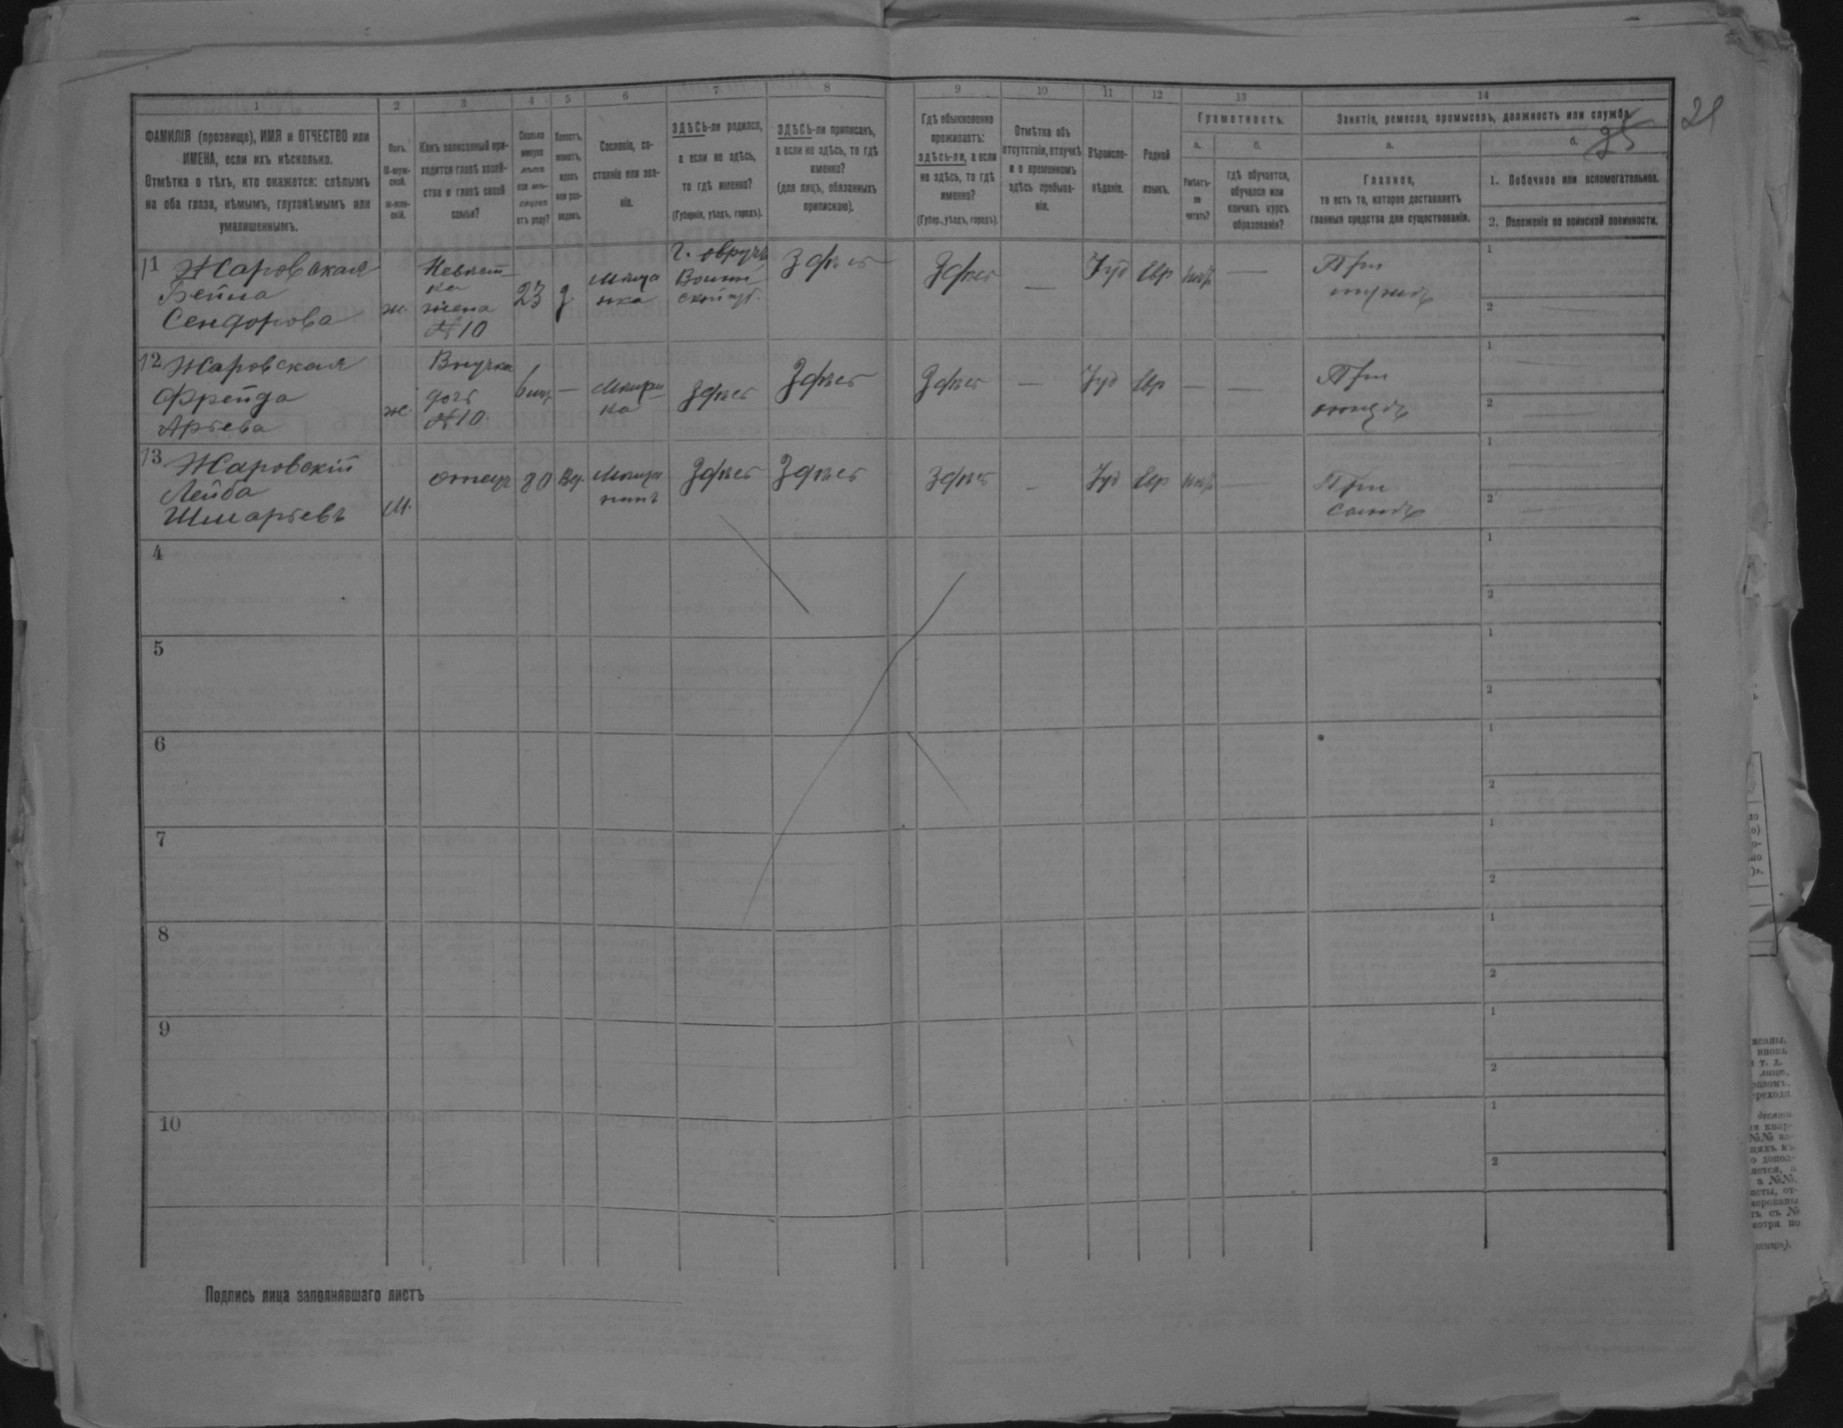 1 2 3 4 5 6 7 8 9 10 11 12 13 14
ФАМИЛІЯ (прозвище), ИМЯ и ОТЧЕСТВО или
ИМЕНА, если ихъ нѣсколько.
Отмѣтка о тѣхъ, кто окажется: слѣпымъ
на оба глаза, нѣмымъ, глухонѣмымъ или
умалишеннымъ.
Полъ.
М-муж-
ской.
Ж-жен-
скій.
Какъ записанный при-
ходится главѣ хозяй-
ства и главѣ своей
семьи?
Сколько
минуло
лѣтъ
или мѣ-
сяцевъ
отъ роду?
Холостъ,
женатъ,
вдовъ
или раз-
веденъ.
Сословіе, со-
стояніе или зва-
ніе.
ЗДѢСЬ-ли родился,
а если не здѣсь,
то гдѣ именно?
(Губернія, уѣздъ, городъ).
ЗДѢСЬ-ли приписанъ,
а если не здѣсь, то гдѣ
именно?
(для лицъ, обязанныхъ
припискою).
Гдѣ обыкновенно
проживаетъ:
здѣсь-ли, а если
не здѣсь, то гдѣ
именно?
(Губер., уѣздъ, городъ).
Отмѣтка объ
отсутствіи, отлучкѣ
и о временномъ
здѣсь пребыва-
ніи.
Вѣроиспо-
вѣданіе.
Родной
языкъ.
Грамотность.
а.
Умѣетъ-
ли
читать?
б.
гдѣ обучается,
обучался или
кончилъ курсъ
образованія?
Занятіе, ремесло, промыселъ, должность или служба.
а.
Главное,
то есть то, которое доставляетъ
главныя средства для существованія.
б.
1. Побочное или вспомогательное.
2. Положеніе по воинской повинности.
25
21
11 Жаровская
Бейла
Сендорова
ж.
Невѣст-
ка
жена
№10
23
з
Мѣща
нка
г. Овручъ
Волын
ской губ.
Здѣсь
Здѣсь
—
Іуд
Евр
—
При
мужѣ
1
2
12 Жаровская
Фрейда
Арьева
ж.
Внучка
дочь
№10
6 мѣс
—
Мѣщан
ка
Здѣсь
Здѣсь
Здѣсь
—
Іуд
Евр
—
—
При
отцѣ
1
2
13 Жаровскій
Лейба
Шмарьевъ
М.
отецъ
80
Вд.
Мѣща
нинъ
Здѣсь
Здѣсь
Здѣсь
-
Іуд
Евр
—
При
сынѣ
1
2
4
1
2
5
1
2
6
1
2
7
1
2
8
1
2
9
1
2
10
1
2
Подпись лица заполнявшаго листъ